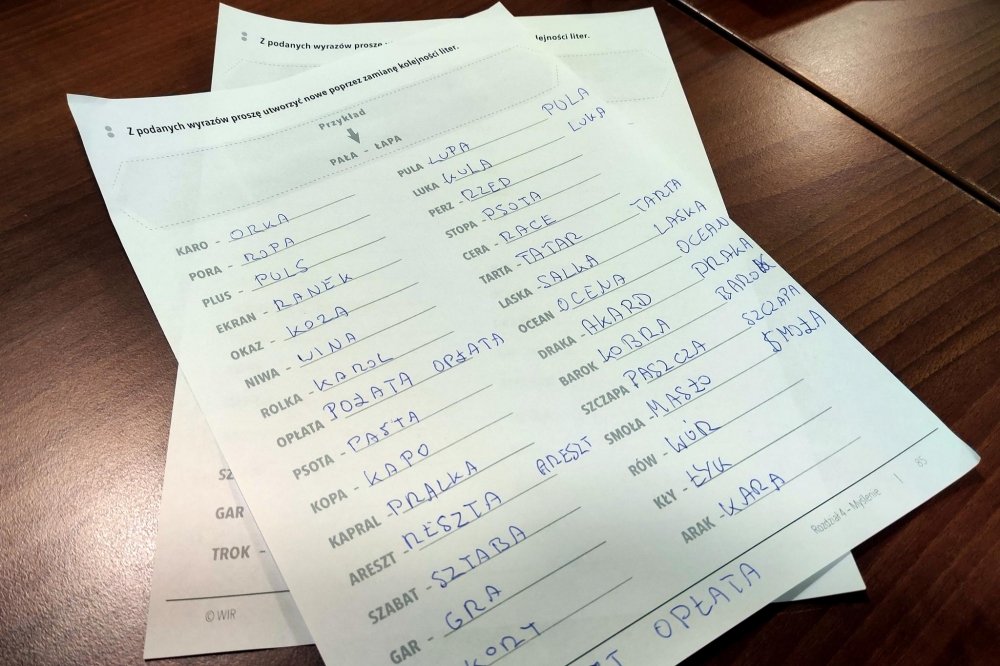 Z podanych wyrazów proszę
olejności liter.
Z podanych wyrazów proszę utworzyć nowe poprzez zamianę kolejności liter.
Przykład
PAŁA - ŁAPA
KARO - ORKA
PORA - ROPA
PLUS - PULS
EKRAN - RANEK
OKAZ - KOZA
NIWA - WINA
ROLKA - KAROL
OPŁATA POŁATA OPŁATA
PSOTA - PASTA
KOPA - KAPO
KAPRAL - PRALKA
ARESZT - RESZTA ARESZT
SZABAT - SZTABA
GAR - GRA
KORT
PULA LUPA PULA
LUKA KULA LUKA
PERZ - RZEP
STOPA - PSOTA
CERA - RACE
TARTA - TATAR TARTA
LASKA - SALKA LASKA
OCEAN OCENA OCEAN
DRAKA - AKARD DRAKA
BAROK KOBRA BAROK
SZCZAPA PASZCZA SZCZAPA
SMOŁA - MASŁO SMOŁA
RÓW - WÓR
KŁY - ŁYK
ARAK - KARA
Rozdział 4 – Myślenie | 85
OPŁATA
SZ
GAR
TROK -
© WIR